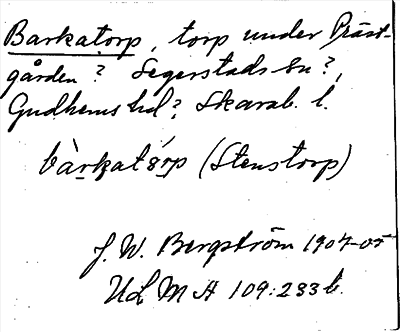 Barkatorp, torp under Präst-
gården? Segerstads sn?,
Gudhems hd? Skarab. l.
bàrkatårp (Stenstorp)
J. W. Bergström 1904-05
ULMA 109:233 b.